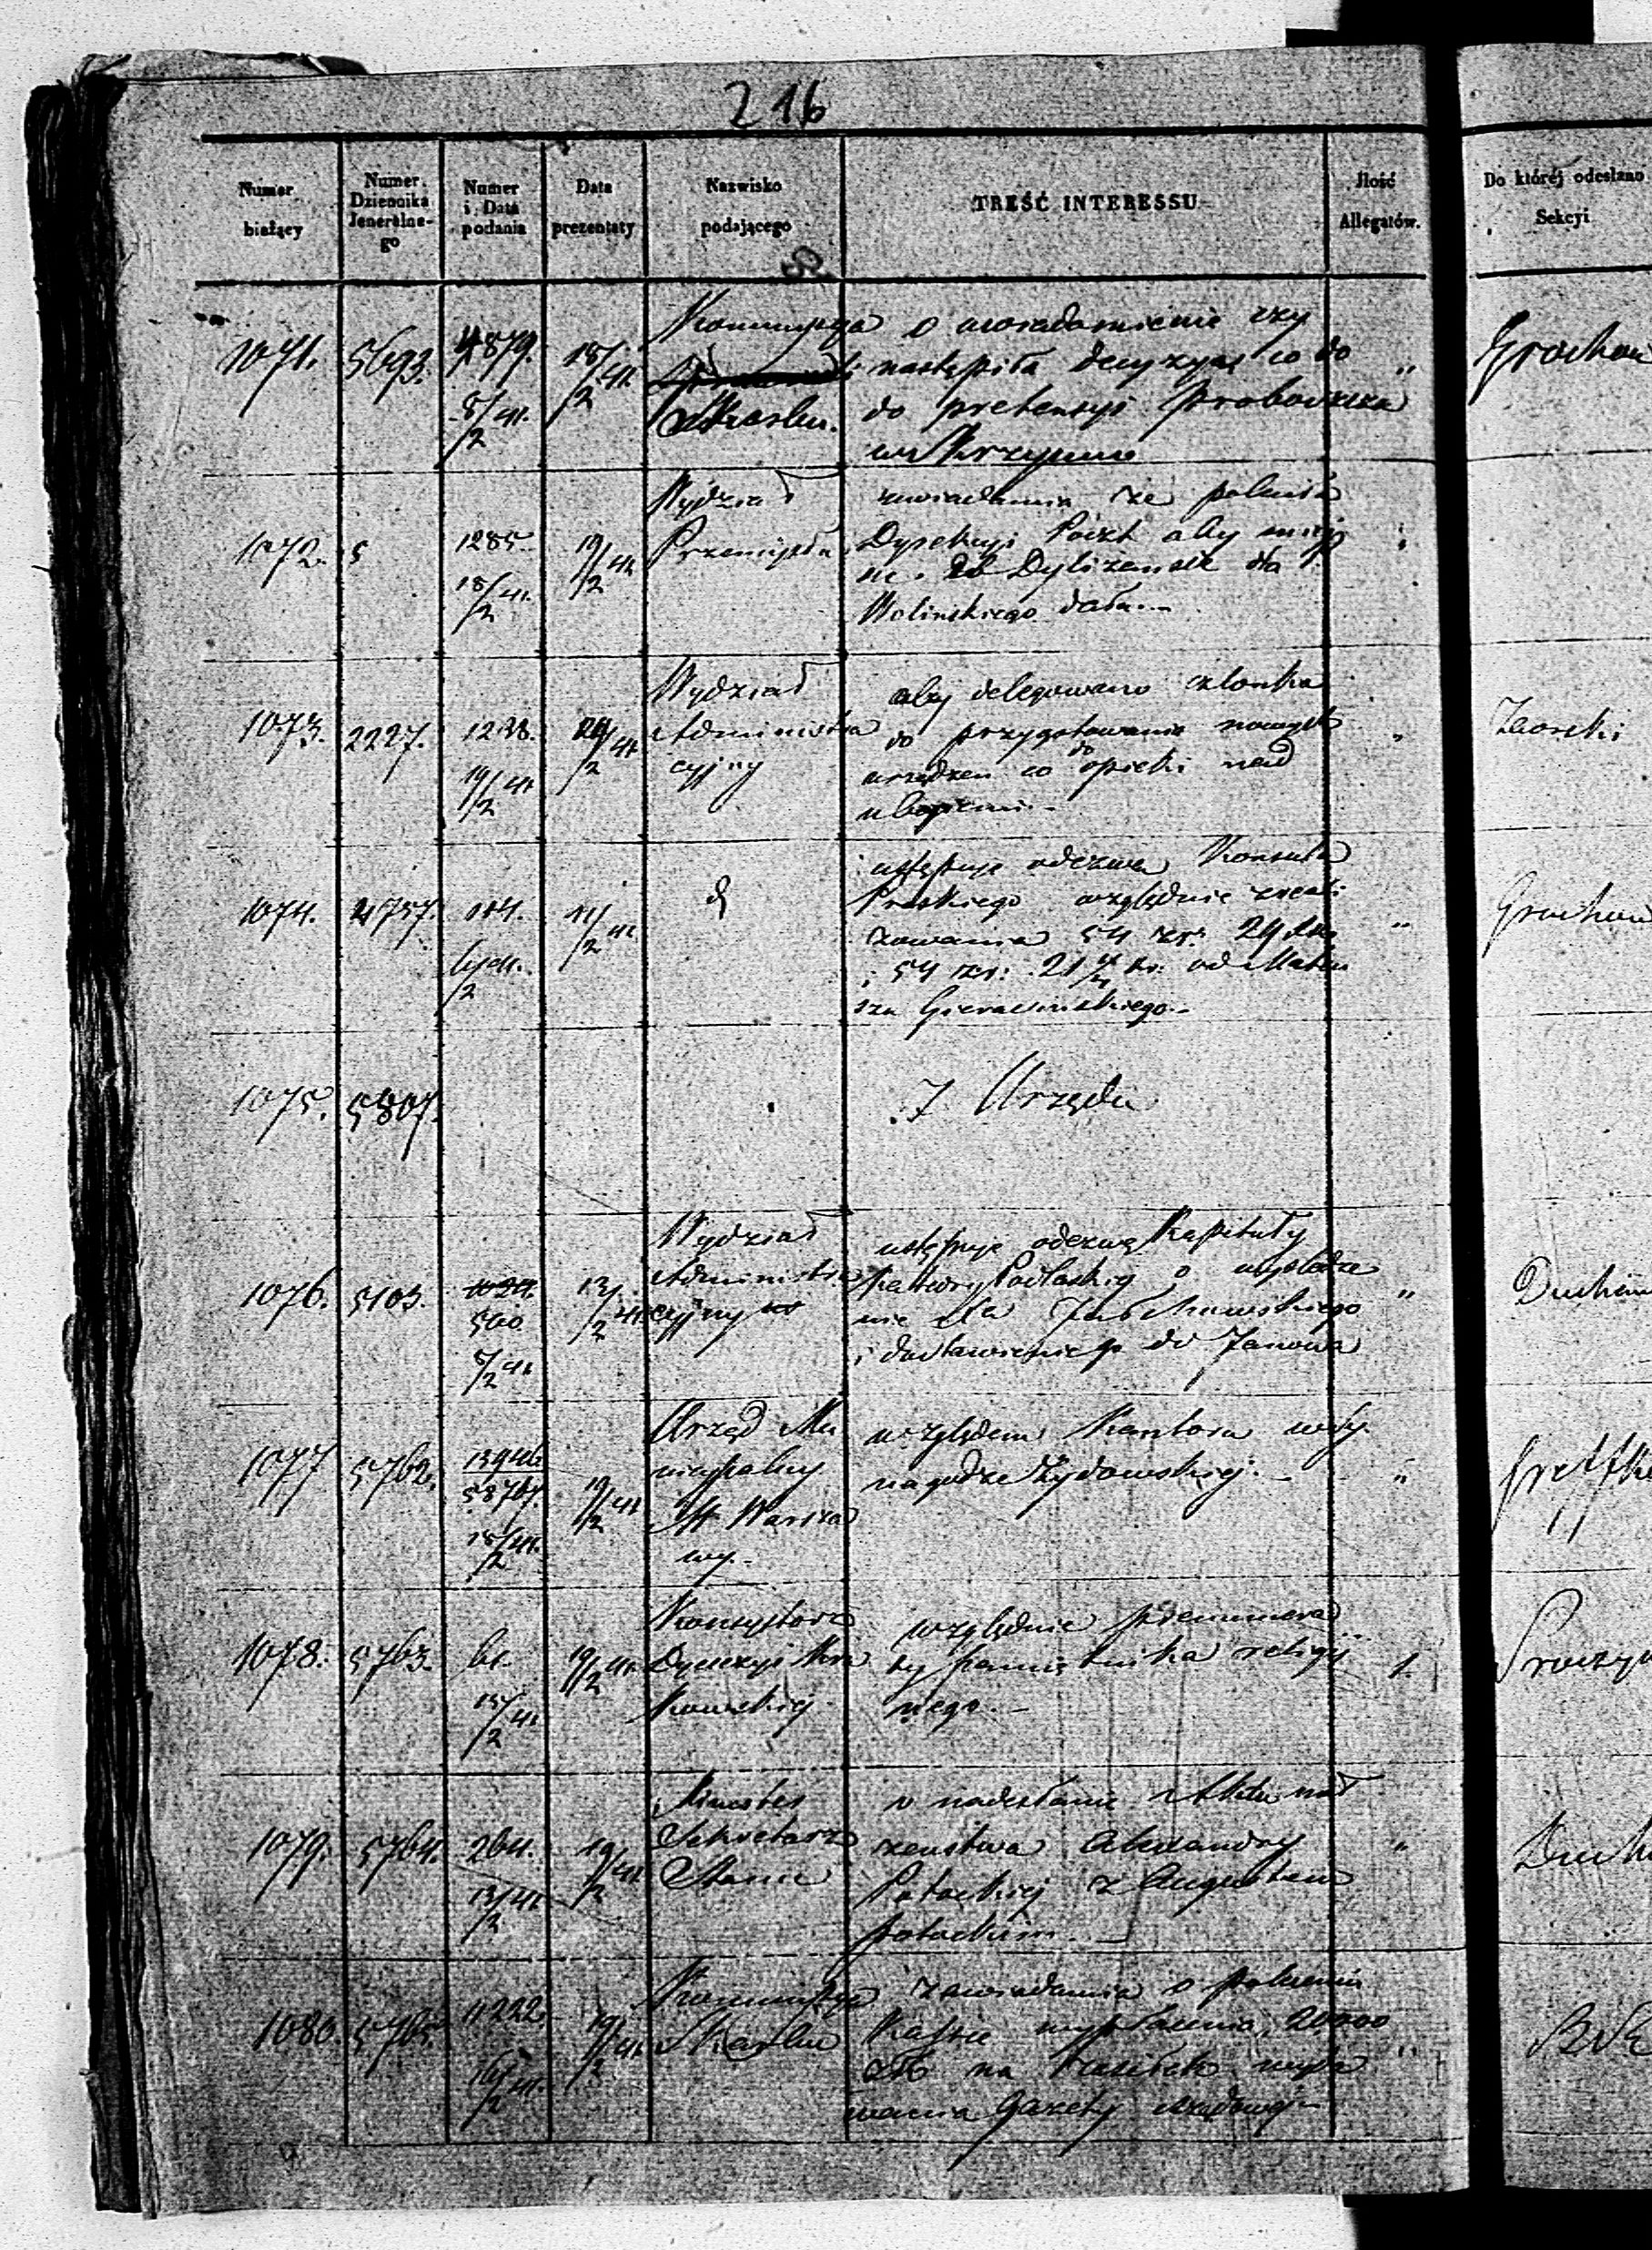 216
Numer bieżący
Numer Dziennika Jeneralne-go
Numer i Data podania
Data prezentaty
Nazwisko podającego
TREŚĆ INTERESSU
Ilość Allegatów.
Do któréj odesłano Sekcyi
1071. 5693. 4879. 5/2 41. 18/2 41.
Kommissya
Skarbu.
o uwiadomienie czy
nastąpiła decyzya co do
do pretensyi Proboszcza
w
"
1072. 5 1285. 18/2 41. 19/2 41.
Wydział
Przemysłu
zawiadamia że poleciła
Dyrekcyi Poczt aby miejs
Dyliżansie dla
Wolinskiego dała.—
1073. 2227. 1238. 19/2 41. 20/2 41.
Wydział
Administra
cyjny
aby delegowano członka
do przygotowania nowych
urządzeń co do opieki nad
ubogiemi.—
"
Zaorski
1074. 4757. 114. 6/2 41. 11/2 41.
d
ustępuje odezwę Konsula
Pruskiego względnie zreali
zowania 54 zr: 29
i 54 zr: 21 kr: od Mateu
sza Gieracińskiego.—
"
1075. 5807.
Z Urzędu
1076. 5103. 1024. 500. 5/2 41. 12/2 41.
Wydział
Administra
cyjny
ustępuje odezwę Kapituły
Katedry Podlaskiej o
nie dla
i dostawienie go do Janowa
"
1077 5762. 13946 58767. 15/2 41. 19/2 41.
Urząd Mu
nicypalny
M Warsza
wy.—
względem Kantora
nagodze Żydowskiej.—
"
1078. 5763. 61. 15/2 41. 19/2 41.
Konsystorz
Dyecezyi Kra
kowskiej
względnie prenumera
ty pamiętnika religij
nego.—
1.
1079. 5764. 264. 13/2 41. 19/2 41.
Minister
Sekretarz
Stanu
o nadesłanie Aktu mał
żeństwa Alexandry
Potockiej z Augustem
Potockim.—
"
1080. 5765. 4222 16/2 41. 19/2 41.
Kommissya
Skarbu
zawiadamia o poleceniu
Kassie wypłacenia 20000
złp na zasiłek wyda
wania Gazety Rządowej—
"